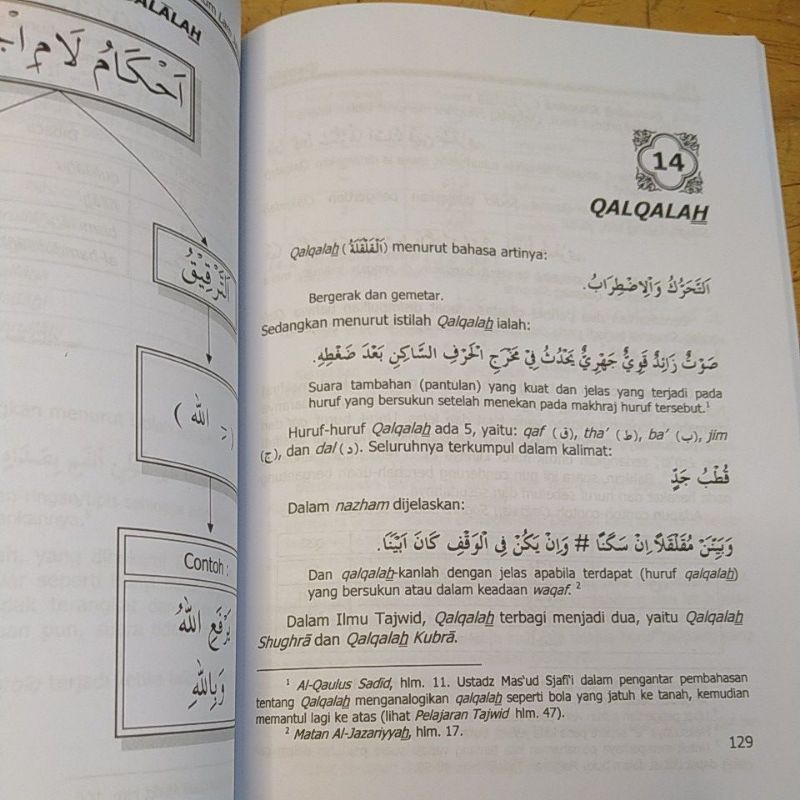 LALAH
اَحْكَامُ لَامِ
اَلتَّرْقِيْقُ
( ـِ الله )
Contoh :
يَرْفَعِ اللهُ
وَبِاللهِ
14
QALQALAH
Qalqalah (اَلْقَلْقَلَةُ) menurut bahasa artinya:
اَلتَّحَرُّكُ وَاْلاِضْطِرَابُ.
Bergerak dan gemetar.
Sedangkan menurut istilah Qalqalah ialah:
صَوْتٌ زَائِدٌ قَوِيٌّ جَهْرِيٌّ يَحْدُثُ فِيْ مَخْرَجِ الْحَرْفِ السَّاكِنِ بَعْدَ ضَغْطِهِ.
Suara tambahan (pantulan) yang kuat dan jelas yang terjadi pada
huruf yang bersukun setelah menekan pada makhraj huruf tersebut.¹
Huruf-huruf Qalqalah ada 5, yaitu: qaf (ق), tha’ (ط), ba’ (ب), jim
(ج), dan dal (د). Seluruhnya terkumpul dalam kalimat:
قُطْبُ جَدٍّ
Dalam nazham dijelaskan:
وَبَيِّنَنْ مُقَلْقَلاً اِنْ سَكَنَا # وَاِنْ يَكُنْ فِي الْوَقْفِ كَانَ اَبْيَنَا.
Dan qalqalah-kanlah dengan jelas apabila terdapat (huruf qalqalah)
yang bersukun atau dalam keadaan waqaf. ²
Dalam Ilmu Tajwid, Qalqalah terbagi menjadi dua, yaitu Qalqalah
Shughrā dan Qalqalah Kubrā.
¹ Al-Qaulus Sadid, hlm. 11. Ustadz Mas’ud Sjafi’i dalam pengantar pembahasan
tentang Qalqalah menganalogikan qalqalah seperti bola yang jatuh ke tanah, kemudian
memantul lagi ke atas (lihat Pelajaran Tajwid hlm. 47).
² Matan Al-Jazariyyah, hlm. 17.
129